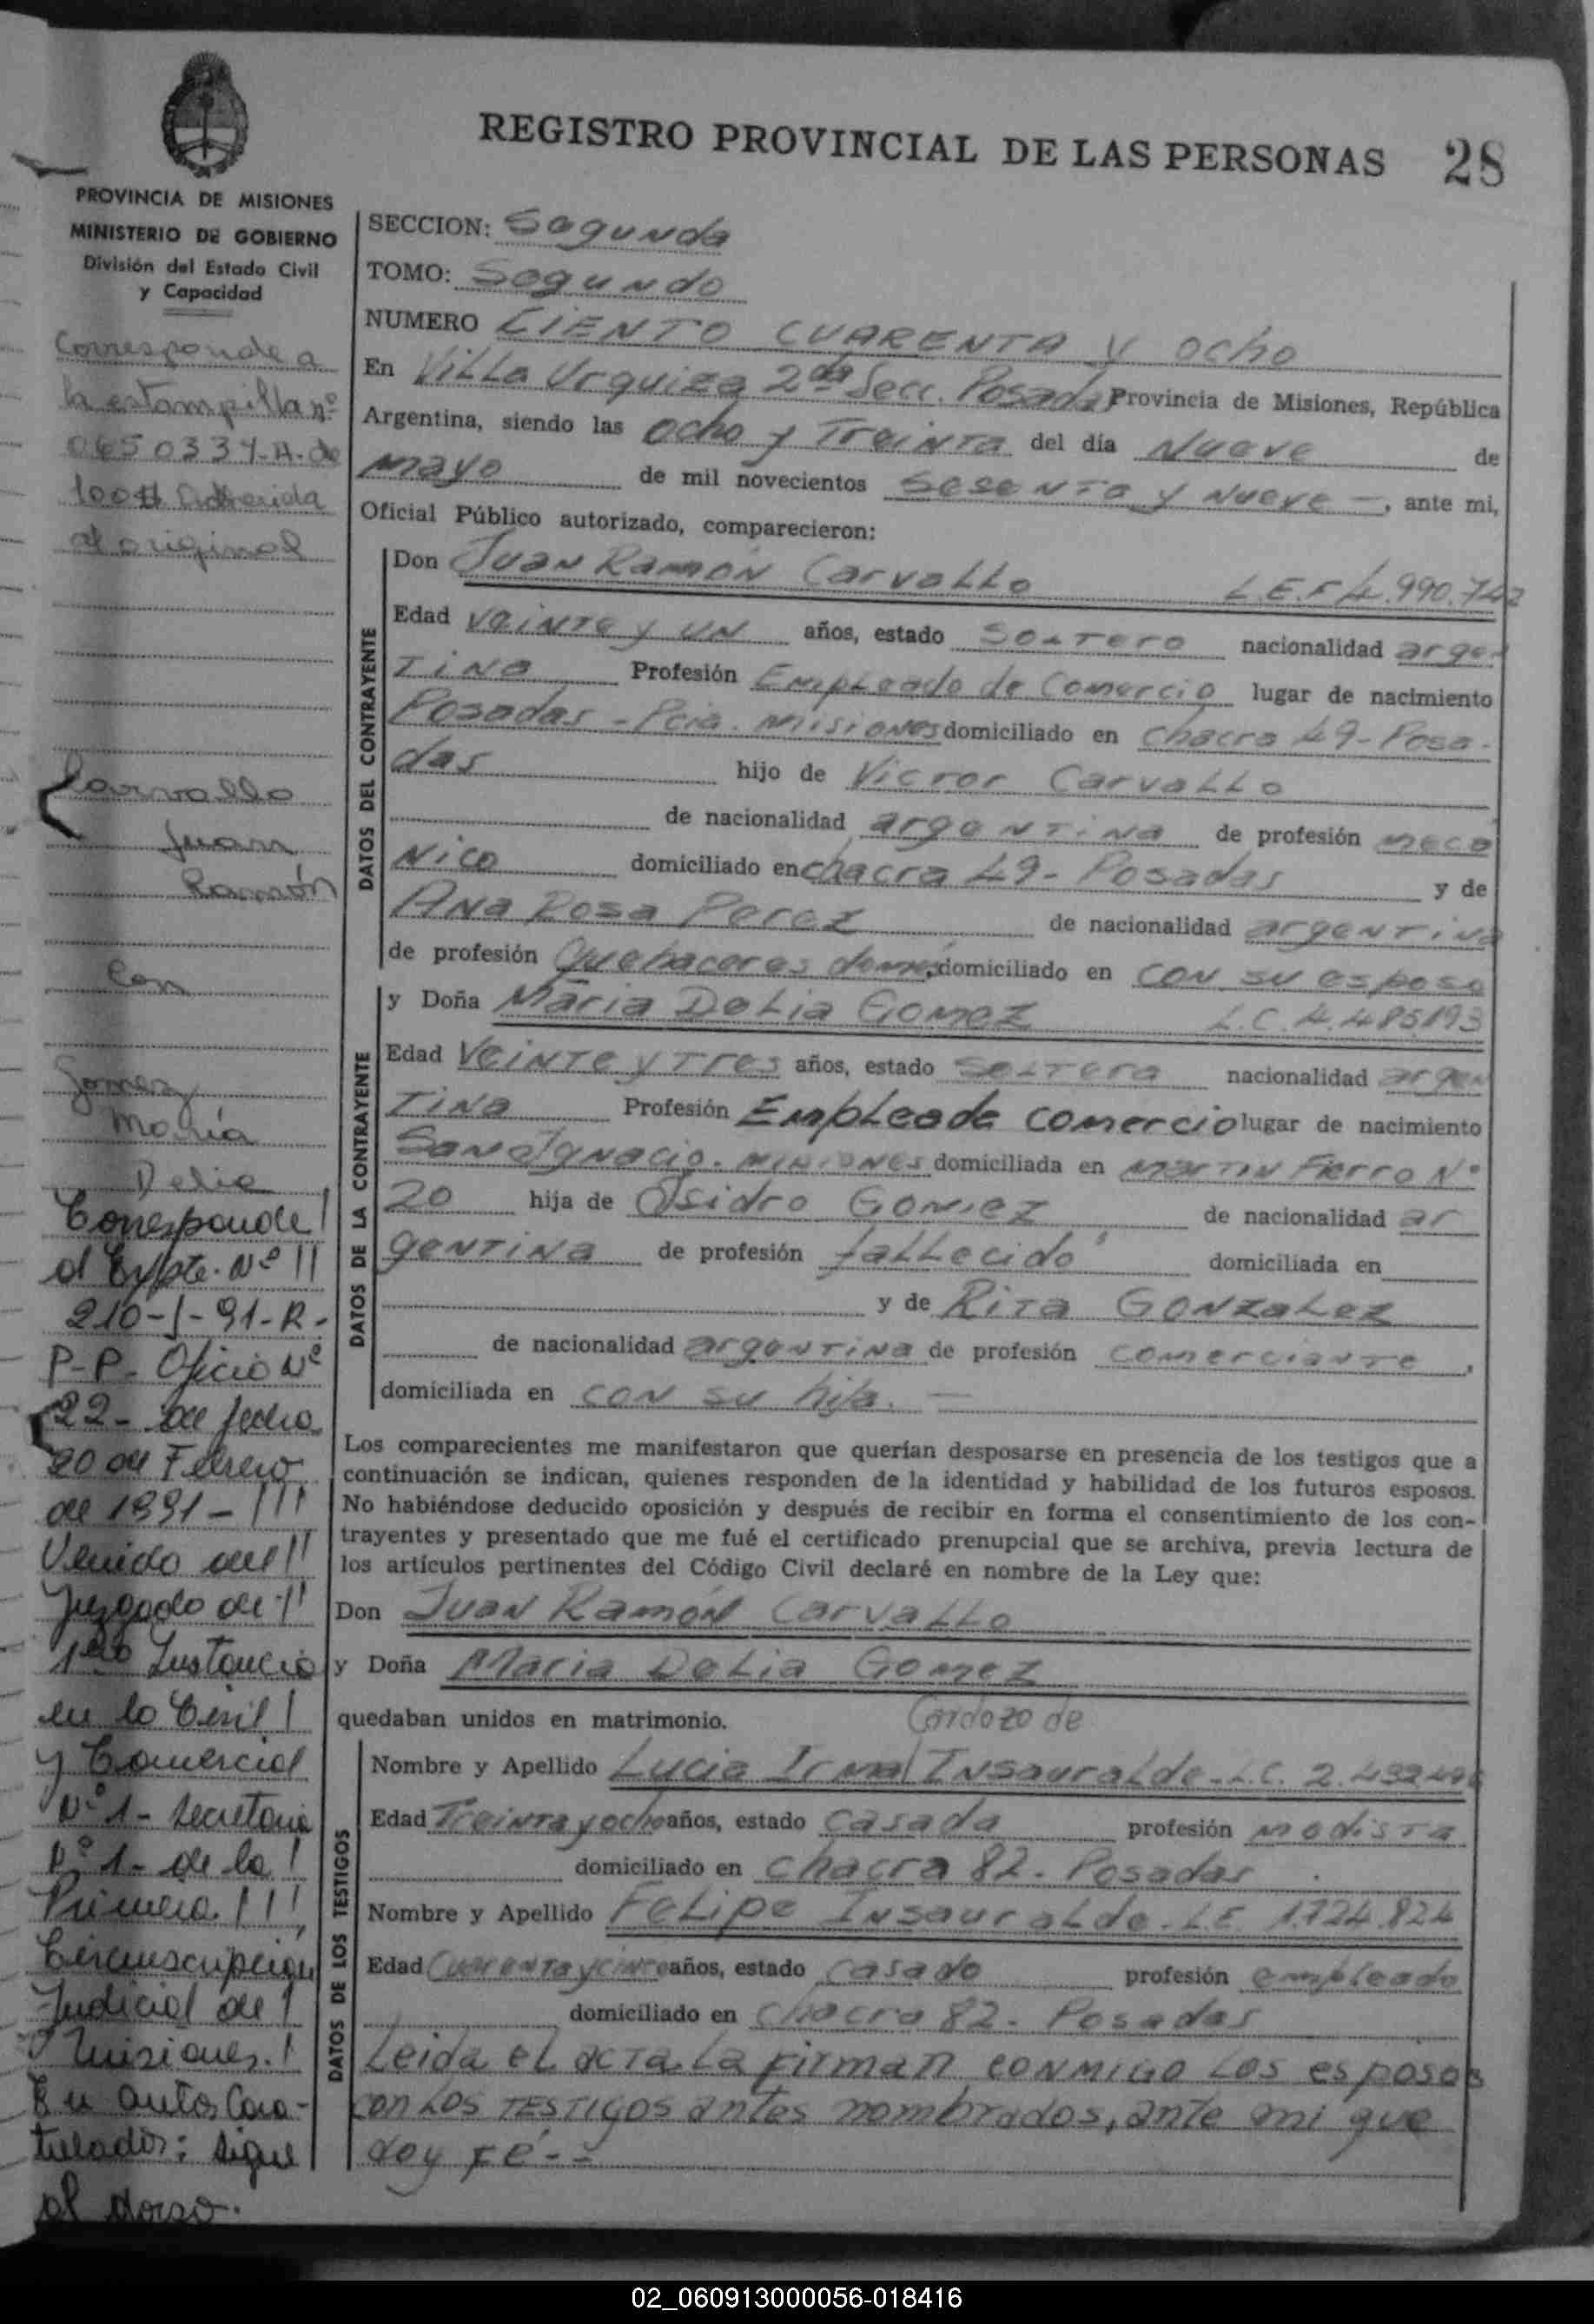 REGISTRO PROVINCIAL DE LAS PERSONAS 28
PROVINCIA DE MISIONES
MINISTERIO DE GOBIERNO
División del Estado Civil
y Capacidad
Corresponde a
la estampilla nº
0650334-A-de
100$ Adherida
al original
Carvallo
Juan
Ramón
Con
Gomez
María
Delia
Corresponde
al Expte. Nº
210-J-91-R-
P-P- Oficio Nº
22- de fecha
20 de Febrero
de 1991-
Venido del
Juzgado de
1era Instancia
en lo Civil
y Comercial
Nº 1- Secretaria
Nº 1- de la
Primera
Circunscripción
Judicial de
Misiones.
En autos Cara-
tulados: Sigue
al dorso.
SECCION: Segunda
TOMO: Segundo
NUMERO CIENTO CUARENTA y ocho
En Villa Urquiza 2da Secc. Posadas Provincia de Misiones, República
Argentina, siendo las ocho y Treinta del día Nueve de
mayo de mil novecientos sesenta y nueve —, ante mi,
Oficial Público autorizado, comparecieron:
DATOS DEL CONTRAYENTE
Don Juan Ramón Carvallo L.E. 4.990.742
Edad veinte y un años, estado soltero nacionalidad argen
tina Profesión Empleado de Comercio lugar de nacimiento
Posadas - Pcia. Misiones domiciliado en chacra 49- Posa-
das hijo de Victor Carvallo
de nacionalidad argentina de profesión meca
nico domiciliado en chacra 49- Posadas y de
Ana Rosa Perez de nacionalidad argentina
de profesión Quehaceres domés domiciliado en con su esposo
DATOS DE LA CONTRAYENTE
y Doña Maria Delia Gomez L.C. 4.485193
Edad Veinte y Tres años, estado soltera nacionalidad argen
tina Profesión Empleada comercio lugar de nacimiento
San Ignacio. misiones domiciliada en Martin Fierro Nº
20 hija de Isidro Gomez de nacionalidad ar
gentina de profesión fallecido domiciliada en
y de Rita Gonzalez
de nacionalidad argentina de profesión comerciante,
domiciliada en con su hija. —
Los comparecientes me manifestaron que querían desposarse en presencia de los testigos que a
continuación se indican, quienes responden de la identidad y habilidad de los futuros esposos.
No habiéndose deducido oposición y después de recibir en forma el consentimiento de los con-
trayentes y presentado que me fué el certificado prenupcial que se archiva, previa lectura de
los artículos pertinentes del Código Civil declaré en nombre de la Ley que:
Don Juan Ramón Carvallo
y Doña Maria Delia Gomez
quedaban unidos en matrimonio.
Cardozo de
DATOS DE LOS TESTIGOS
Nombre y Apellido Lucia Irma Insauralde - L.C. 2.432.496
Edad Treinta y ocho años, estado casada profesión modista
domiciliado en chacra 82- Posadas
Nombre y Apellido Felipe Insauralde - L.E. 1.724.824
Edad Cuarenta y cinco años, estado casado profesión empleado
domiciliado en chacra 82- Posadas
Leida el acta la firman conmigo los esposos
con los testigos antes nombrados, ante mi que
doy fé.-
02_060913000056-018416